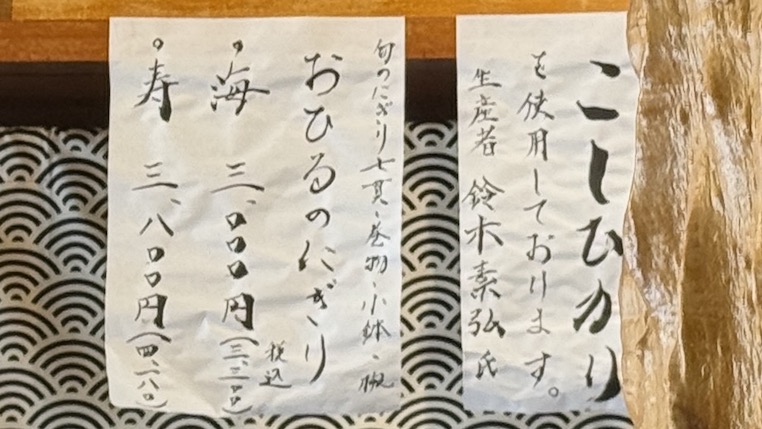 こしひかり
を使用しております。
生産者 鈴木素弘氏
旬のにぎり七貫、巻物、小鉢、椀
おひるのにぎり
。海 三、〇〇〇円(三、三〇〇)
税込
。寿 三、八〇〇円(四、一八〇)